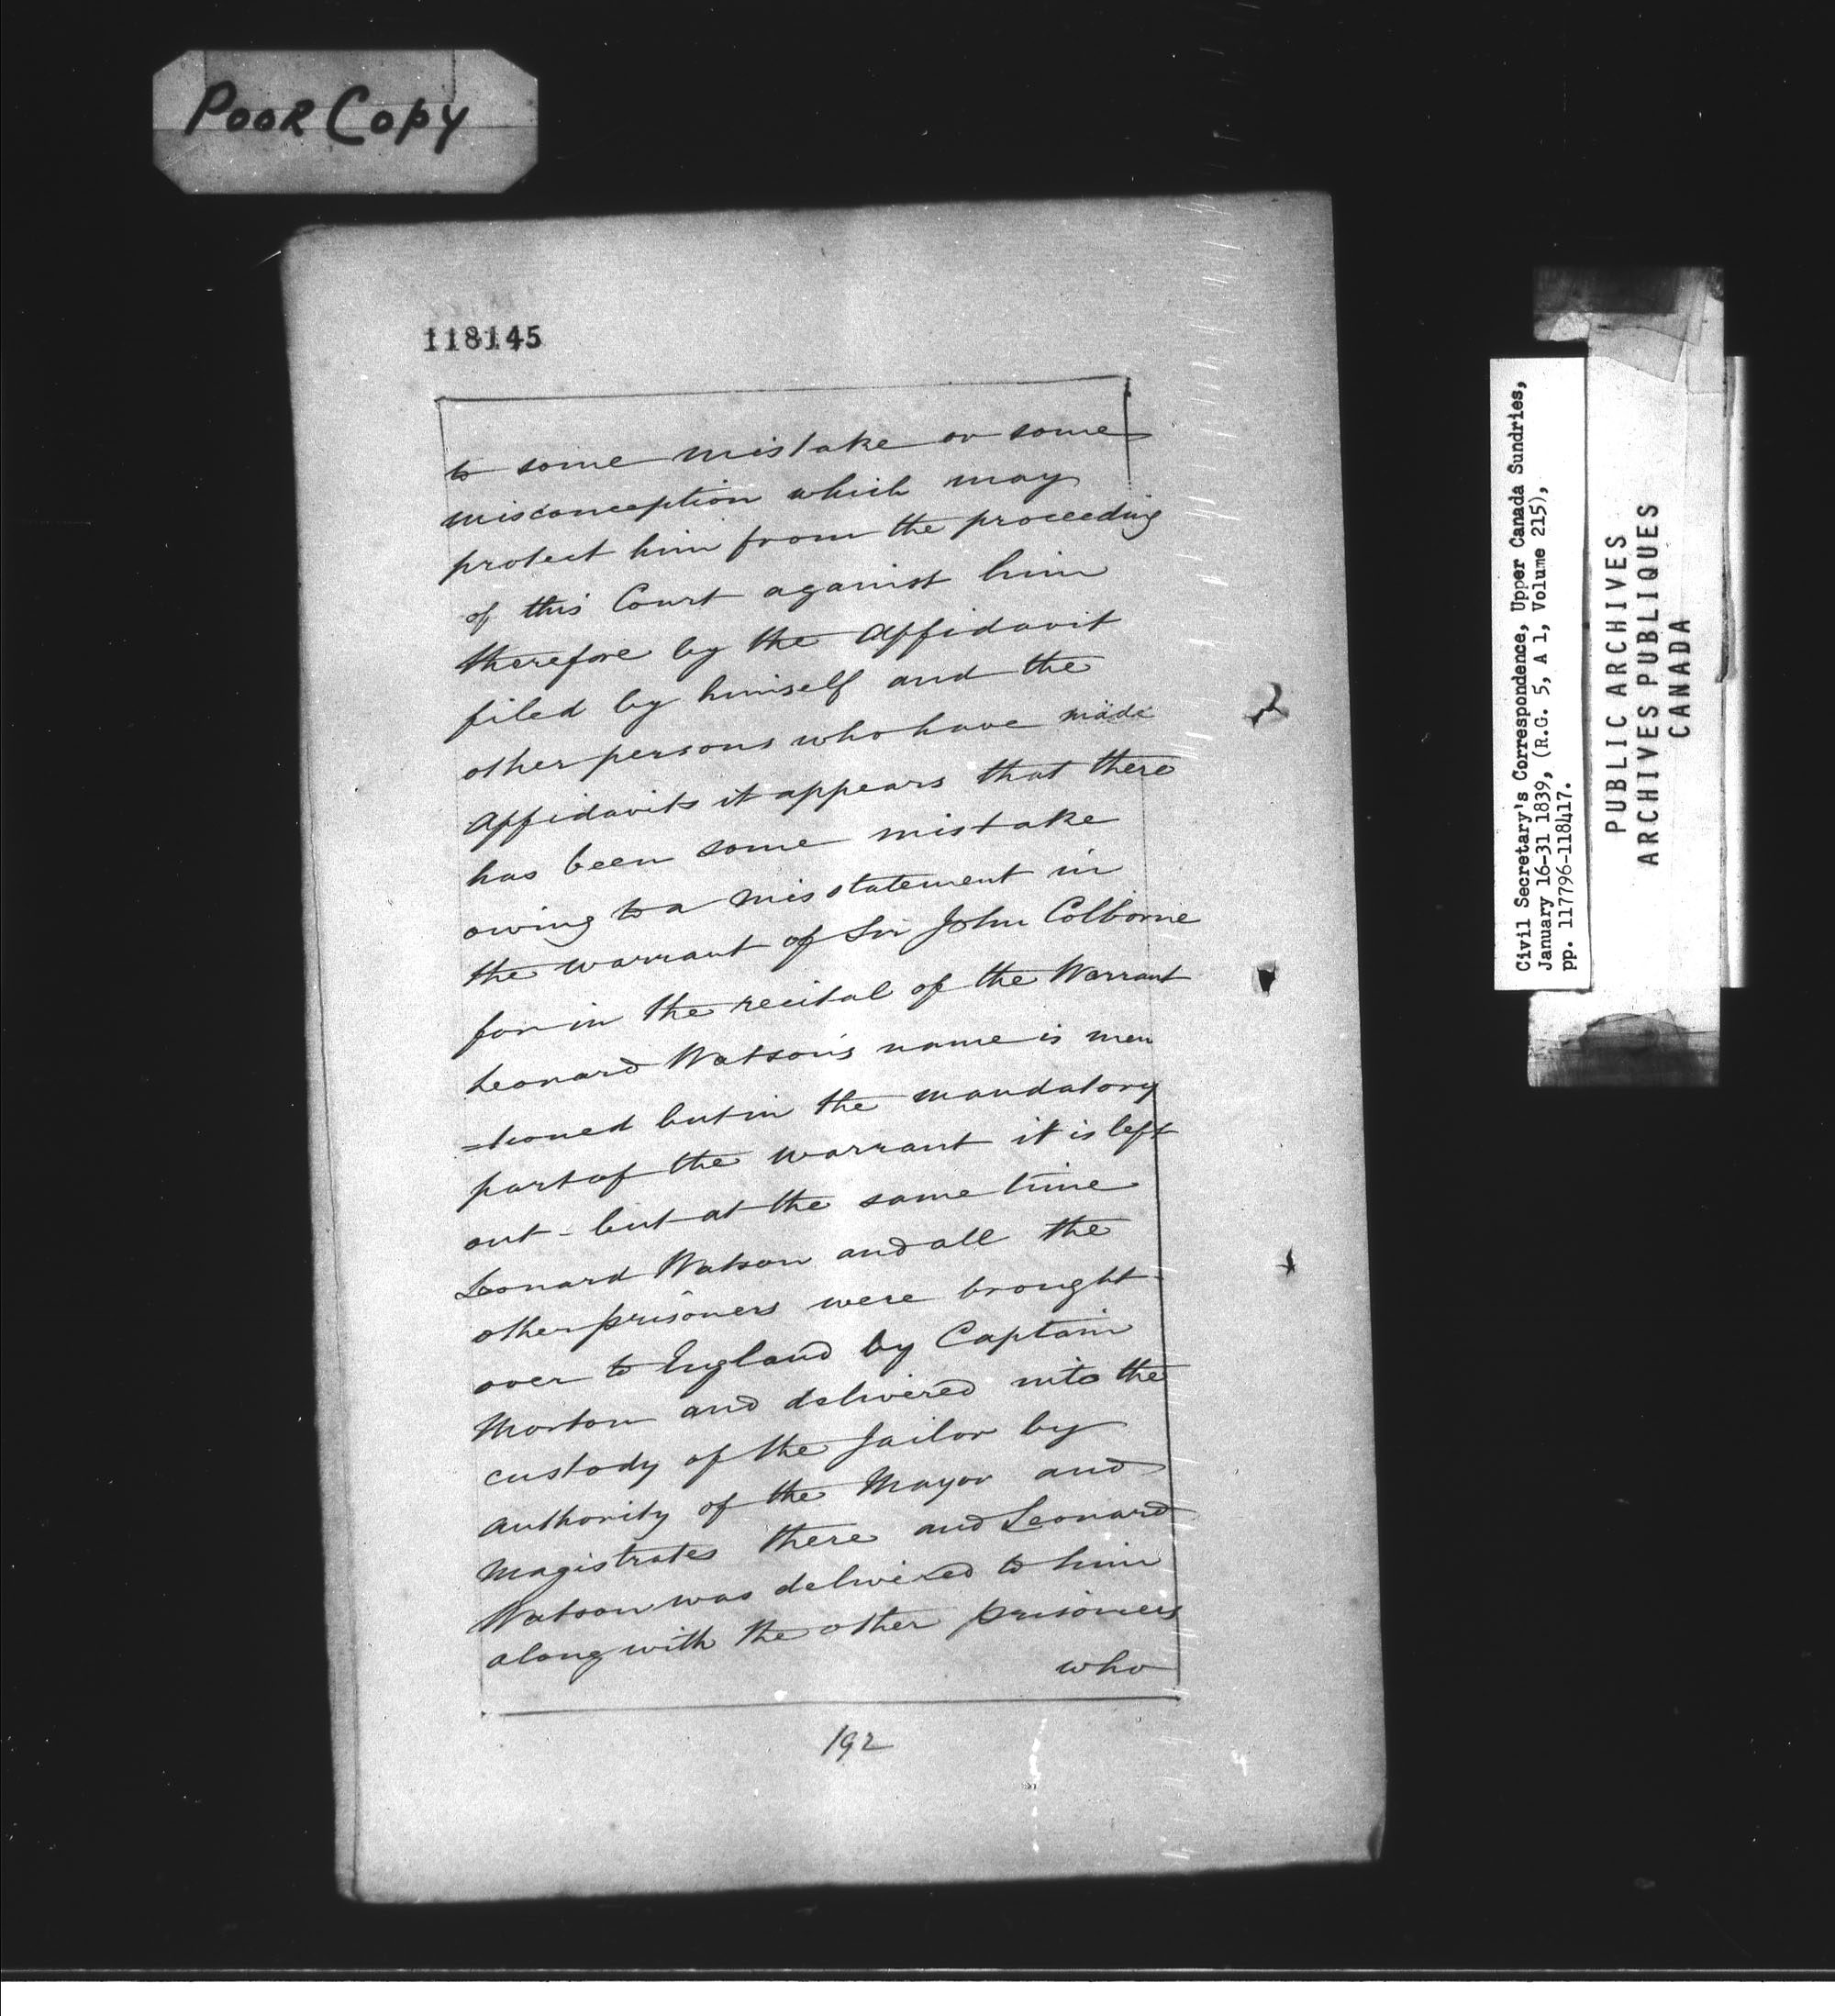 Poor Copy
118145
to some mistake or some
misconception which may
protect him from the proceeding
of this Court against him
therefore by the Affidavit
filed by himself and the
other persons who have made
Affidavits it appears that there
has been some mistake
owing to a misstatement in
the warrant of Sir John Colborne
for in the recital of the Warrant
Leonard Watson's name is men
=tioned but in the mandatory
part of the warrant it is left
out - but at the same time
Leonard Watson and all the
other prisoners were brought
over to England by Captain
Morton and delivered into the
custody of the Jailor by
authority of the Mayor and
Magistrates there and Leonard
Watson was delivered to him
along with the other prisoners
who
192
Civil Secretary's Correspondence, Upper Canada Sundries,
January 16-31 1839, (R.G. 5, A 1, Volume 215),
pp. 117796-118417.
PUBLIC ARCHIVES
ARCHIVES PUBLIQUES
CANADA